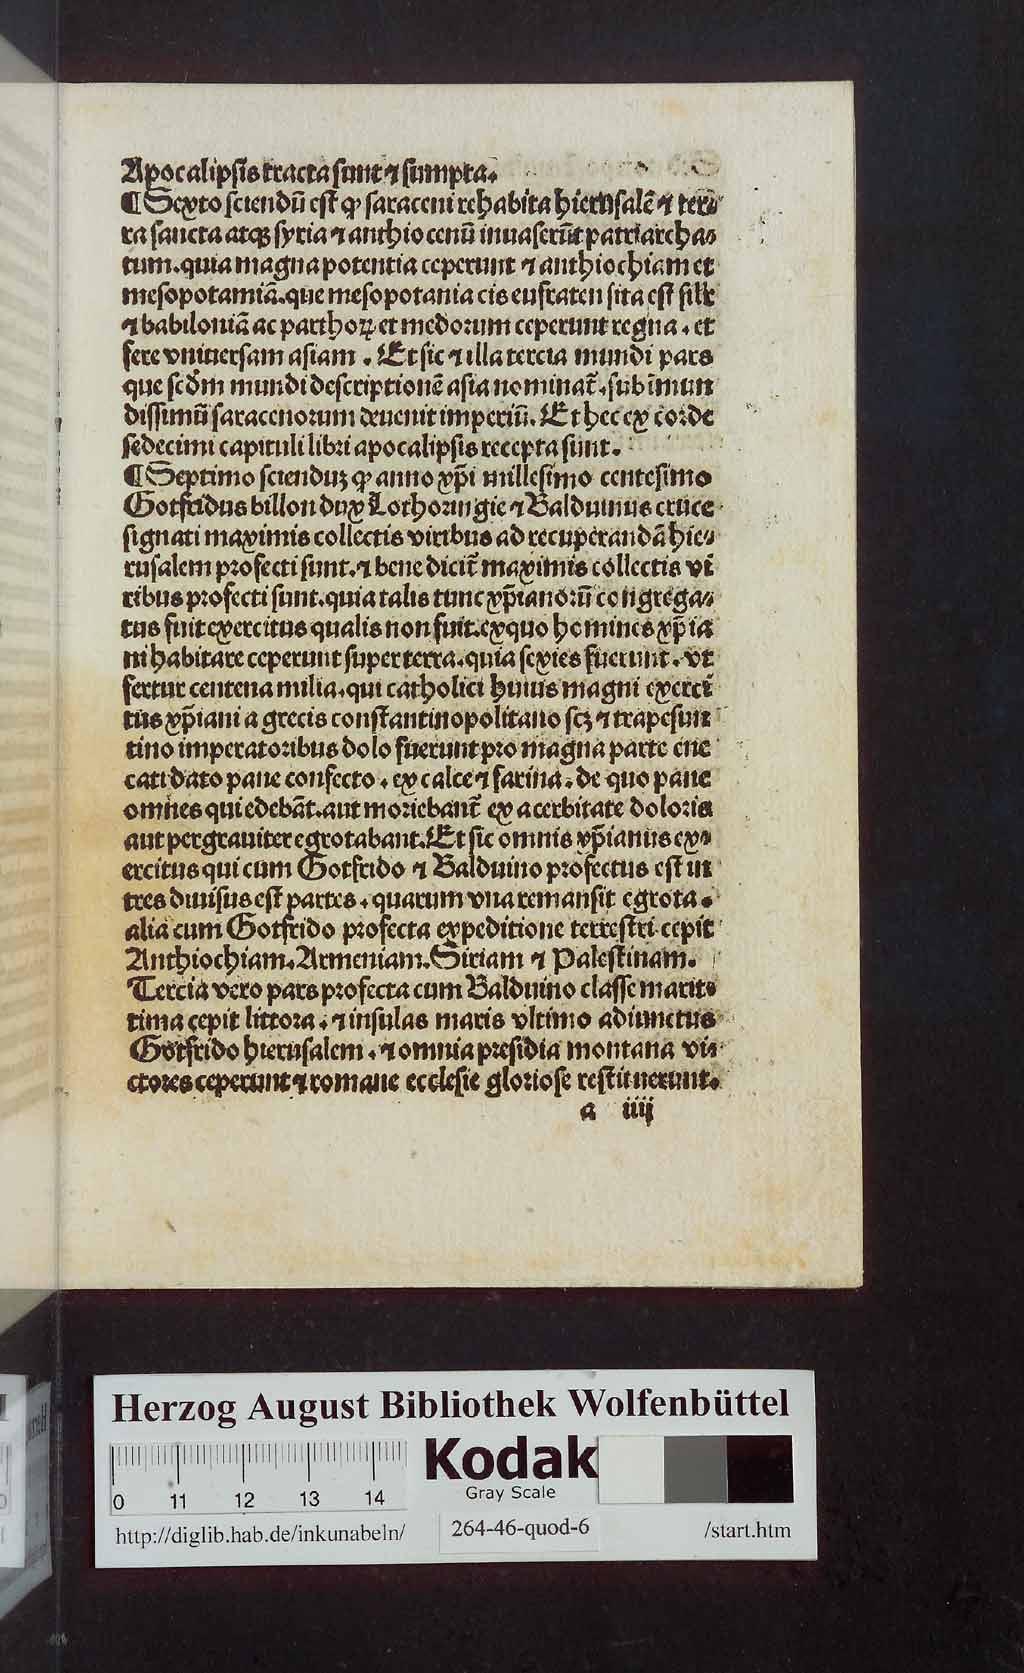 Apocalipsis tracta sunt ⁊ sumpta.
¶ Sexto sciendū est ꝙ saraceni rehabita hierusalē ⁊ ter⸗
ra sancta atqꝫ syria ⁊ anthiocenū inuaserūt patriarcha⸗
tum. quia magna potentia ceperunt ⁊ anthiochiam et
mesopotamiā. que mesopotania cis eufraten sita est silr
⁊ babiloniā ac parthoꝝ et medorum ceperunt regna. et
fere vniuersam asiam. Et sic ⁊ illa tercia mundi pars
que scdm mundi descriptionē asia nominat̄. sub īmun
dissimū saracenorum deuenit imperiū. Et hec ex corde
sedecimi capituli libri apocalipsis recepta sunt.
¶ Septimo scienduꝫ ꝙ anno xp̄i millesimo centesimo
Gotfridus billon dux Lothoringie ⁊ Balduinus cruce
signati maximis collectis viribus ad recuperandā hie⸗
rusalem profecti sunt. ⁊ bene dicit̄ maximis collectis vi
ribus profecti sunt. quia talis tunc xp̄ianorū congrega⸗
tus fuit exercitus qualis non fuit. exquo homines xp̄ia
ni habitare ceperunt super terra. quia sexies fuerunt. vt
fertur centena milia. qui catholici huius magni exerci
tus xp̄iani a grecis constantinopolitano scꝫ ⁊ trapesun
tino imperatoribus dolo fuerunt pro magna parte ene
cati dato pane confecto. ex calce ⁊ farina. de quo pane
omnes qui edebāt. aut moriebant̄ ex acerbitate doloris
aut pergrauiter egrotabant. Et sic omnis xp̄ianus ex⸗
ercitus qui cum Gotfrido ⁊ Balduino profectus est in
tres diuisus est partes. quarum vna remansit egrota.
alia cum Gotfrido profecta expeditione terrestri cepit
Anthiochiam. Armeniam. Siriam ⁊ Palestinam.
Tercia vero pars profecta cum Balduino classe marit⸗
tima cepit littora. ⁊ insulas maris vltimo adiunctus
Gotfrido hierusalem. ⁊ omnia presidia montana vi⸗
ctores ceperunt ⁊ romane ecclesie gloriose restituerunt.
a iiij
Herzog August Bibliothek Wolfenbüttel
0 11 12 13 14
Kodak
Gray Scale
http://diglib.hab.de/inkunabeln/
264-46-quod-6
/start.htm